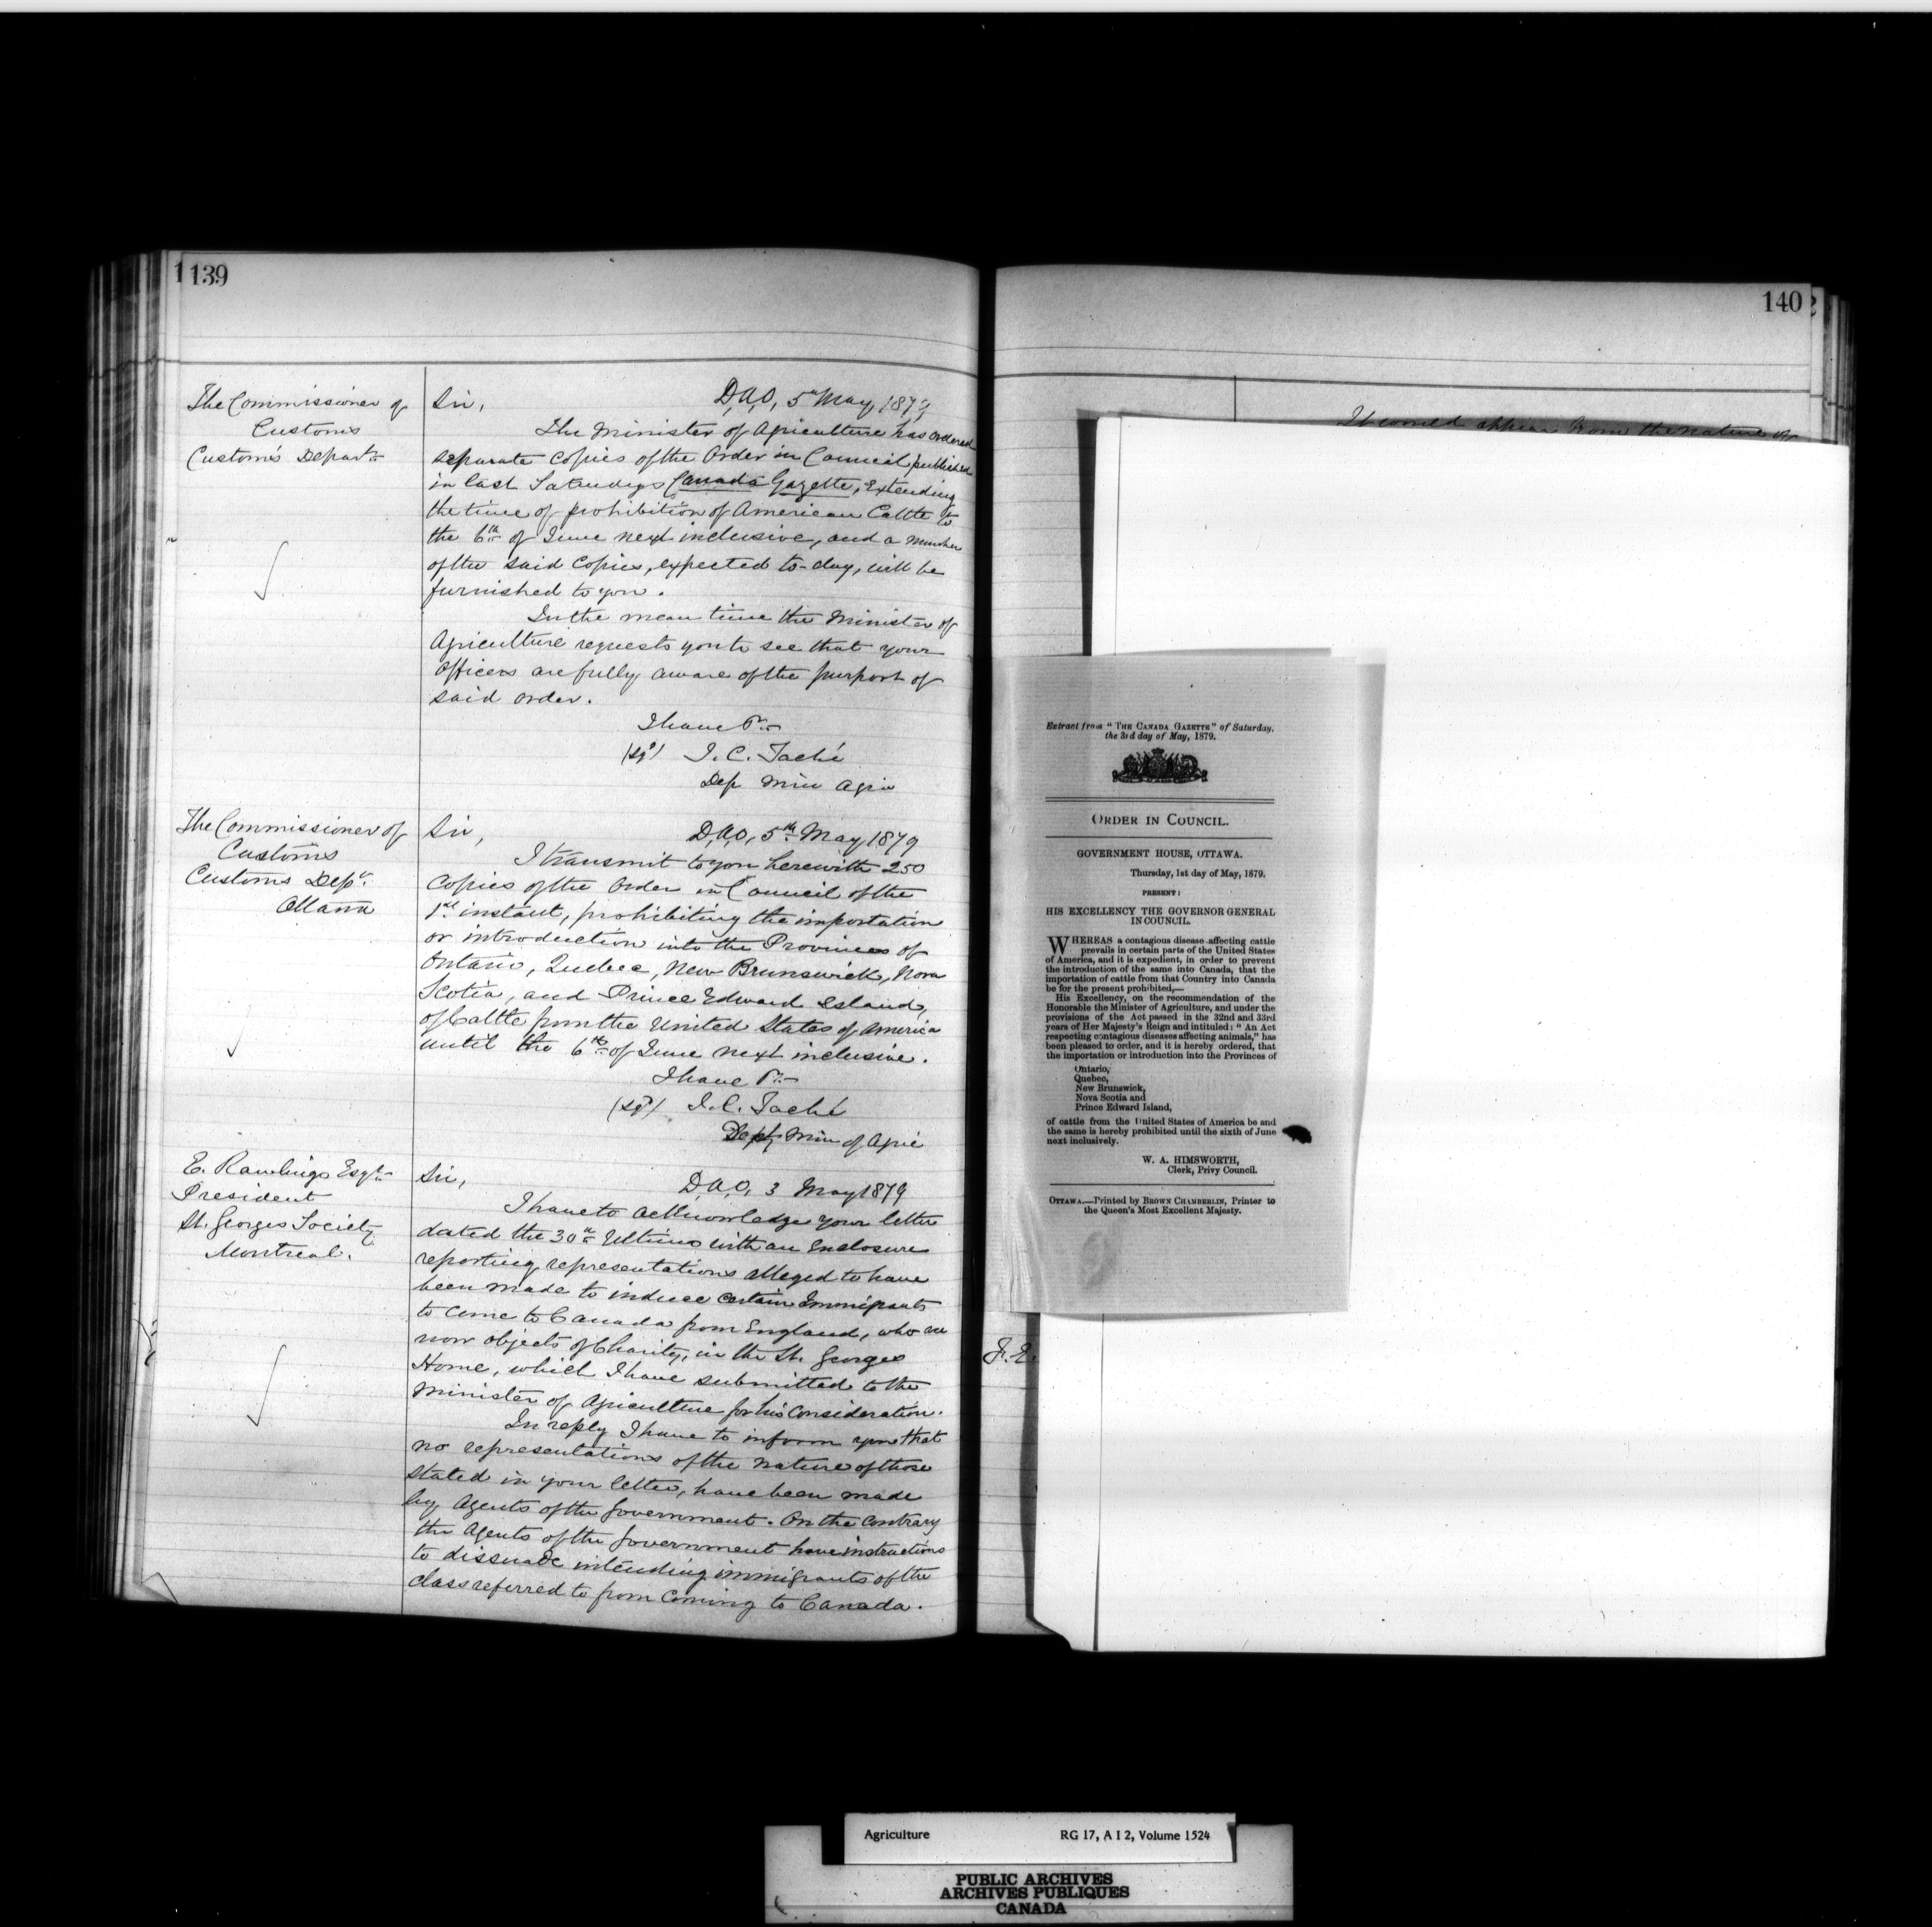 1139
The Commissioner of
Customs
Customs Depart.
Sir, D,A,O, 5th May, 1879
The Minister of Agriculture has ordered
separate copies of the Order in Council published
in last Saturdays Canada Gazette, Extending
the time of prohibition of American Cattle to
the 6th of June next inclusive, and a number
of the said Copies, expected to-day, will be
furnished to you.
In the mean time the Minister of
Agriculture requests you to see that your
Officers are fully aware of the purport of
said order.
I have &c
(sgd) J. C. Taché
Dep Min Agric
The Commissioner of
Customs
Customs Dept.
Ottawa
Sir, D,A,O, 5th May, 1879
I transmit to you herewith 250
Copies of the Order in Council of the
1st instant, prohibiting the importation
or introduction into the Provinces of
Ontario, Quebec, New Brunswick, Nova
Scotia, and Prince Edward Island,
of Cattle from the United States of America
until the 6th of June next inclusive.
I have &c
(sgd) J. C. Taché
Depty Min of Agric
E. Rawlings Esqr
President
St. Georges Society
Montreal.
Sir, D,A,O, 3 May 1879
I have to acknowledge your letter
dated the 30th Ultimo with an Enclosure
reporting representations alleged to have
been made to induce certain Immigrants
to come to Canada from England, who are
now objects of Charity, in the St. Georges
Home, which I have submitted to the
Minister of Agriculture for his Consideration.
In reply I have to inform you that
no representations of the nature of those
stated in your letter, have been made
by Agents of the Government. On the Contrary
the Agents of the Government have instructions
to dissuade intending immigrants of the
class referred to from Coming to Canada.
140
It would appear from the nature of
Extract from "THE CANADA GAZETTE" of Saturday,
the 3rd day of May, 1879.
ORDER IN COUNCIL.
GOVERNMENT HOUSE, OTTAWA.
Thursday, 1st day of May, 1879.
PRESENT:
HIS EXCELLENCY THE GOVERNOR GENERAL
IN COUNCIL.
WHEREAS a contagious disease affecting cattle
prevails in certain parts of the United States
of America, and it is expedient, in order to prevent
the introduction of the same into Canada, that the
importation of cattle from that Country into Canada
be for the present prohibited,—
His Excellency, on the recommendation of the
Honorable the Minister of Agriculture, and under the
provisions of the Act passed in the 32nd and 33rd
years of Her Majesty's Reign and intituled: "An Act
respecting contagious diseases affecting animals," has
been pleased to order, and it is hereby ordered, that
the importation or introduction into the Provinces of
Ontario,
Quebec,
New Brunswick,
Nova Scotia and
Prince Edward Island,
of cattle from the United States of America be and
the same is hereby prohibited until the sixth of June
next inclusively.
W. A. HIMSWORTH,
Clerk, Privy Council.
OTTAWA.—Printed by BROWN CHAMBERLIN, Printer to
the Queen's Most Excellent Majesty.
J. E.
Agriculture RG 17, A I 2, Volume 1524
PUBLIC ARCHIVES
ARCHIVES PUBLIQUES
CANADA